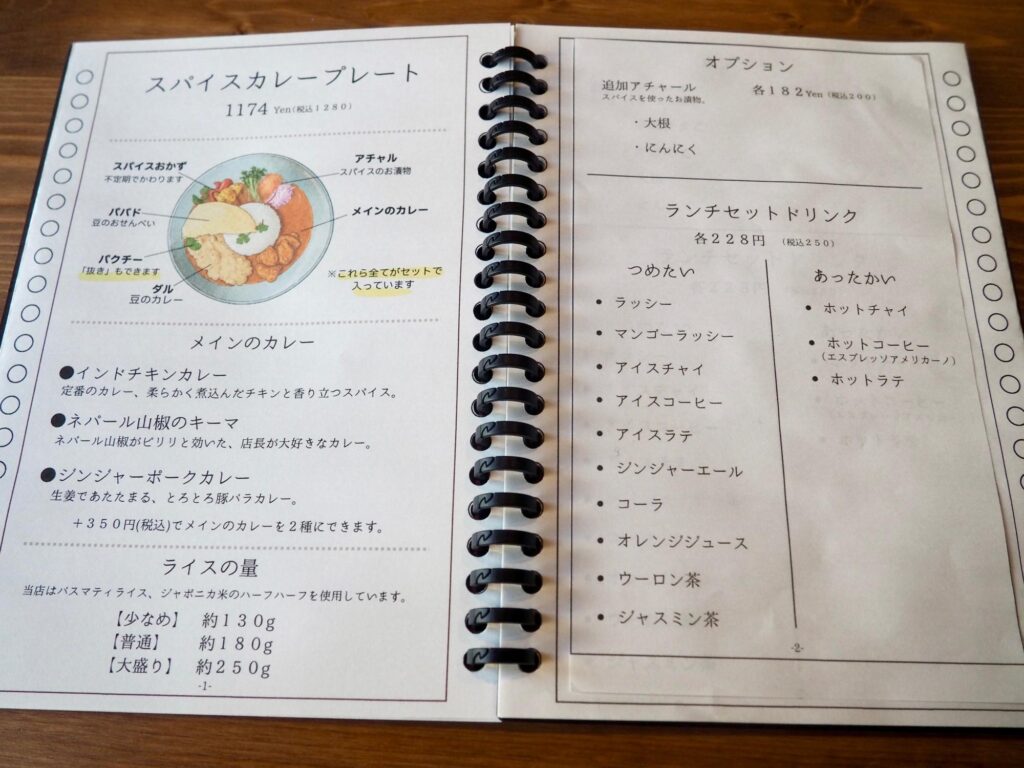 スパイスカレープレート
1174 Yen(税込1280)
スパイスおかず
不定期でかわります
パパド
豆のおせんべい
パクチー
「抜き」もできます
ダル
豆のカレー
アチャル
スパイスのお漬物
メインのカレー
※これら全てがセットで
入っています
メインのカレー
●インドチキンカレー
定番のカレー、柔らかく煮込んだチキンと香り立つスパイス。
●ネパール山椒のキーマ
ネパール山椒がピリリと効いた、店長が大好きなカレー。
●ジンジャーポークカレー
生姜であたたまる、とろとろ豚バラカレー。
+350円(税込)でメインのカレーを2種にできます。
ライスの量
当店はバスマティライス、ジャポニカ米のハーフハーフを使用しています。
【少なめ】 約130g
【普通】 約180g
【大盛り】 約250g
-1-
オプション
追加アチャール 各182Yen(税込200)
スパイスを使ったお漬物。
・大根
・にんにく
ランチセットドリンク
各228円 (税込250)
つめたい
• ラッシー
• マンゴーラッシー
• アイスチャイ
• アイスコーヒー
• アイスラテ
• ジンジャーエール
• コーラ
• オレンジジュース
• ウーロン茶
• ジャスミン茶
あったかい
• ホットチャイ
• ホットコーヒー
(エスプレッソアメリカーノ)
• ホットラテ
-2-